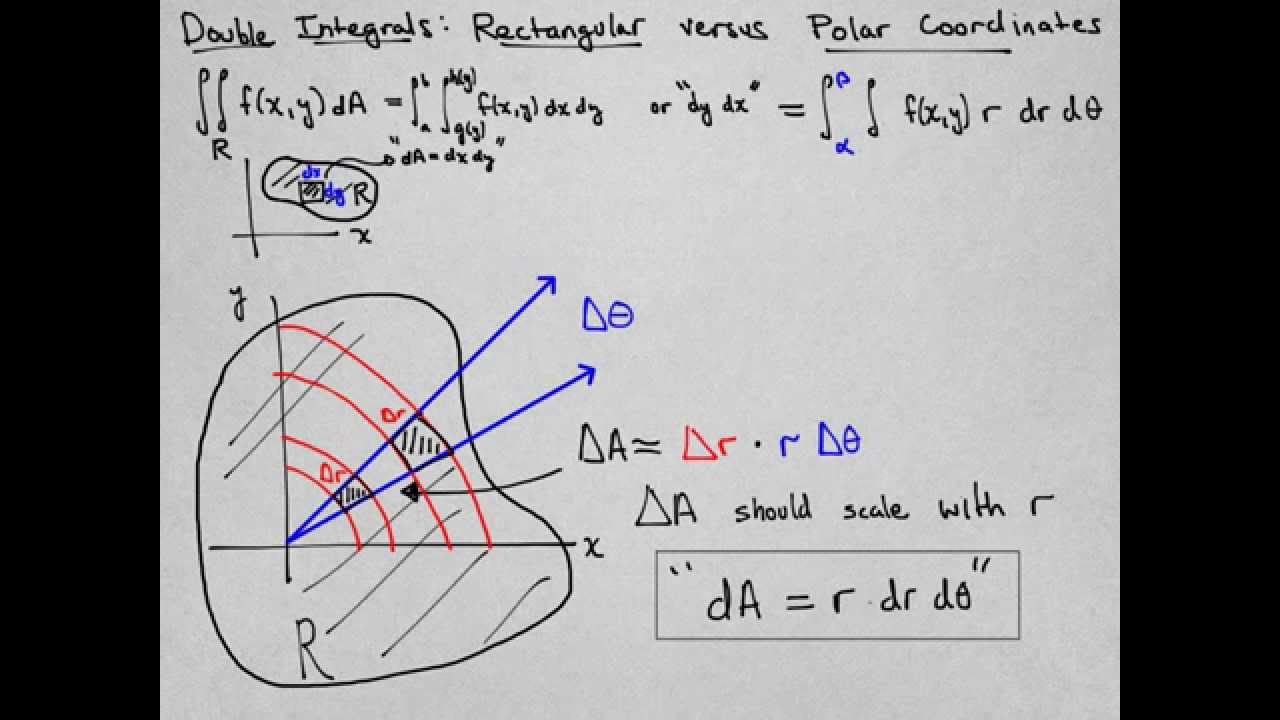 Double Integrals: Rectangular versus Polar Coordinates
∬_R f(x,y) dA = ∫_a^b ∫_{g(y)}^{h(y)} f(x,y) dx dy or "dy dx" = ∫_α^β ∫ f(x,y) r dr dθ
"dA = dx dy"
dx
dy R
x
y
Δθ
Δr
ΔA ≈ Δr · r Δθ
Δr
ΔA should scale with r
x
"dA = r dr dθ"
R